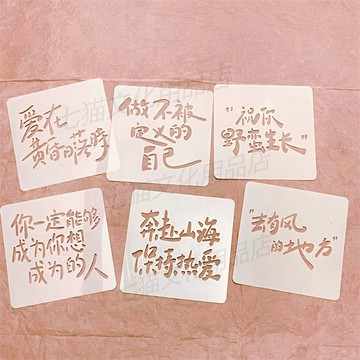 爱在
黄昏日落時
做不被
定义的
自己
"祝你
野蛮生长"
你一定能够
成为你想
成为的人
奔赴山海
保持热爱
"去有风
的地方"
七猫文化用品店
七猫文化用品店